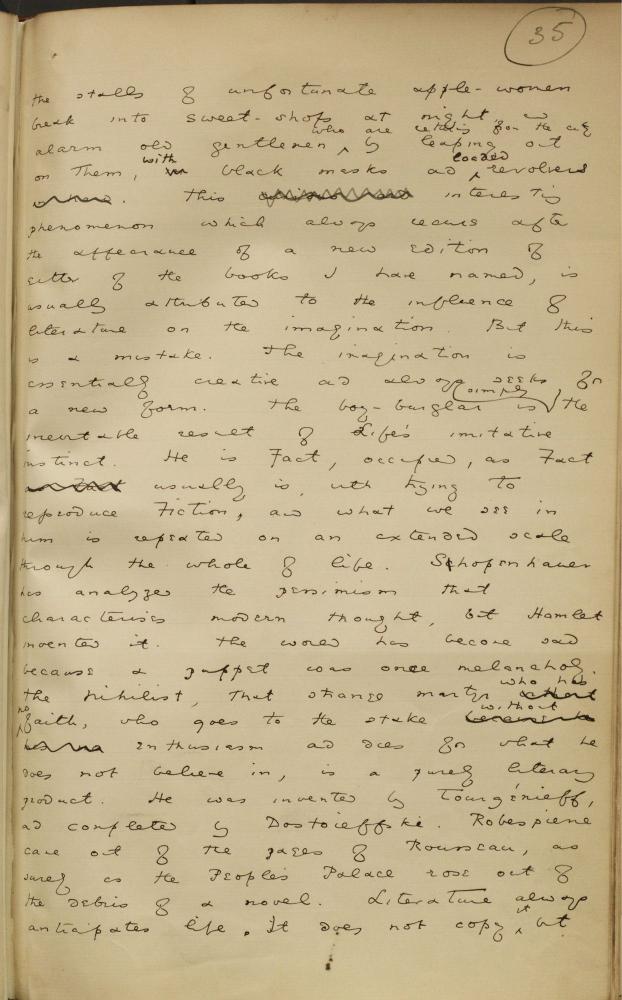 35
the stalls of unfortunate apple-women
break into sweet-shops at night and
who are returning from the city
alarm old gentlemen, by leaping out
with loaded
on them, black masks and revolvers
. This interesting
phenomenon which always occurs after
the appearance of a new edition of
either of the books I have named, is
usually attributed to the influence of
literature on the imagination. But this
is a mistake. The imagination is
essentially creative and always seeks for
simply
a new form. The boy-burglar is the
inevitable result of Life's imitative
instinct. He is Fact, occupied, as Fact
as Fact usually is, with trying to
reproduce Fiction, and what we see in
him is repeated on an extended scale
through the whole of life. Schopenhauer
has analyzed the pessimism that
characterises modern thought, but Hamlet
invented it. The world has become sad
because a puppet was once melancholy.
who has
The Nihilist, that strange martyr
no without
faith, who goes to the stake
enthusiasm and dies for what he
does not believe in, is a purely literary
product. He was invented by Tourgénieff,
and completed by Dostoieffski. Robespierre
came out of the pages of Rousseau, as
surely as the People's Palace rose out of
the debris of a novel. Literature always
it
anticipates life. It does not copy, but